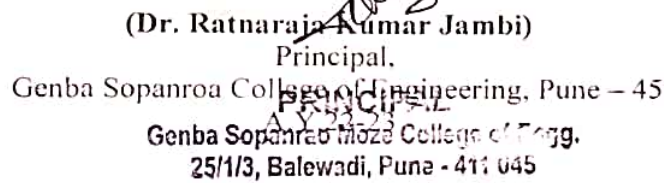 (Dr. Ratnaraja Kumar Jambi)
Principal,
Genba Sopanroa College of Engineering, Pune – 45
PRINCIPAL
A.Y 22-23
Genba Sopanrao Moze College of Engg.
25/1/3, Balewadi, Pune - 411 045